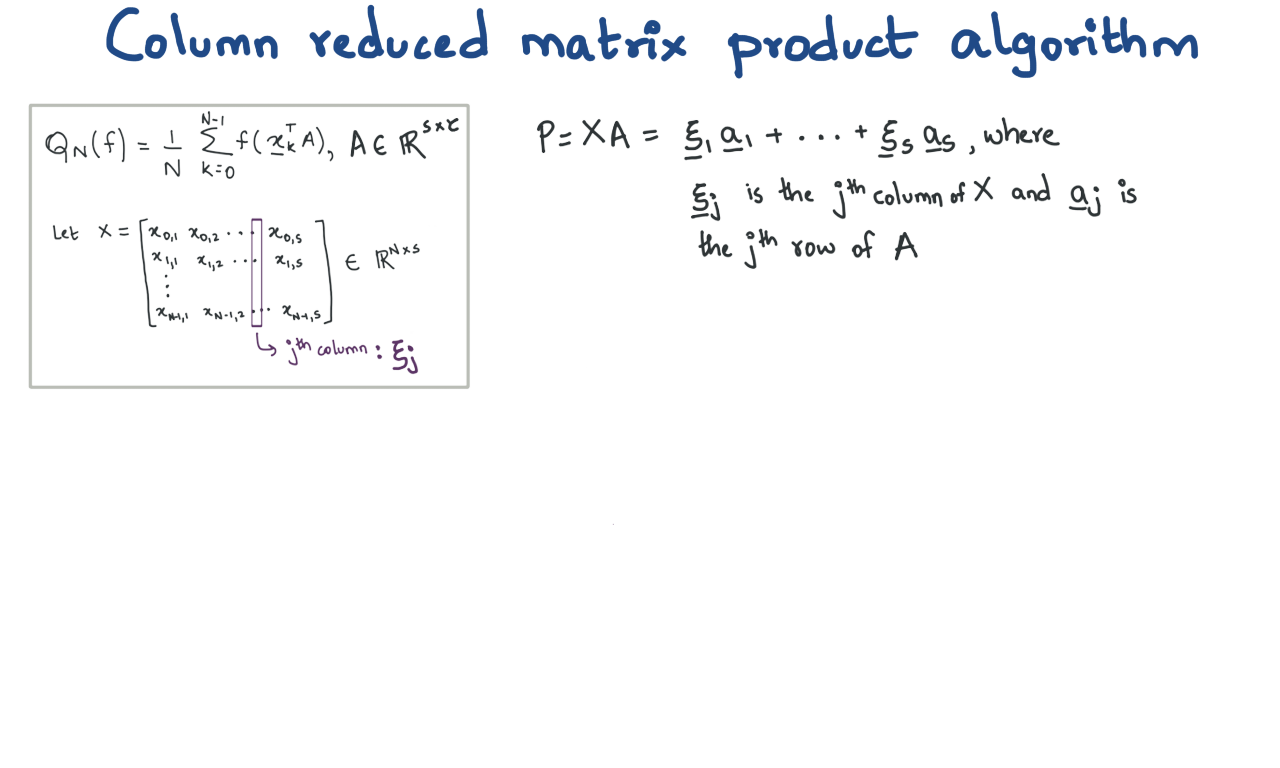 Column reduced matrix product algorithm
Q_N(f) = 1/N ∑_{k=0}^{N-1} f(x_k^T A), A ∈ ℝ^{s×τ}
Let X = [x_{0,1} x_{0,2} ... x_{0,s}
x_{1,1} x_{1,2} ... x_{1,s}
⋮
x_{N-1,1} x_{N-1,2} ... x_{N-1,s}] ∈ ℝ^{N×s}
↳ j^th column : ξ_j
P = XA = ξ_1 a_1 + ... + ξ_s a_s, where
ξ_j is the j^th column of X and a_j is
the j^th row of A